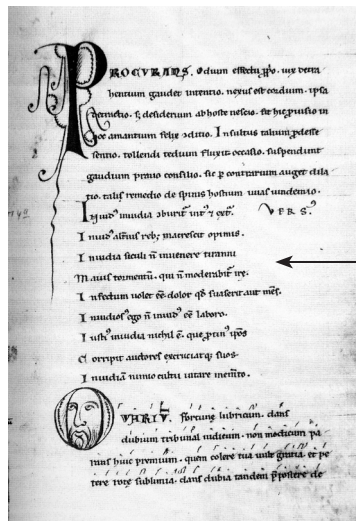 PROCURANS. Odium effectu ꝓpo. uix detra
hentium gaudet intentio. nexus est cordium. ipsa
detractio. ab hoste nescio. fit hic in
hoc amantium felix ꝯditio. Insultus talium ꝓdesse
sentio. tollendi tedium fluxit occasio. suspendunt
gaudium prauo consilio. sic ꝑ contrarium auget dila
tio. talis remedio de spinis hostium uuas uindemio.
Inuidꝰ inuidia ꝯburit̄ intꝰ ⁊ ext̄. VERSꝰ
Inuidꝰ altiꝰ rebꝫ macrescit opimis.
Inuidia siculi ñ inuenere tiranni
Maius tormentū. qui ñ moderabit̄ ire.
Infectum uolet ēē. dolor qđ suaserit aut mēs.
Inuidiosꝰ ego ñ inuidꝰ ēē laboro.
Iustiꝰ inuidia nichil ē. que ꝓtinꝰ ipsos
Corripit auctores excruciatqꝫ suos
Inuidiā nimio cultu uitare memto.
O UARIŪ. fortune lubricum. dans
dubium tribunal iudicum. non modicum pa
rans huic premium. quem colere tua uult gratia. et pe
tere rote sublimia. dans dubia tamen p̄postere de